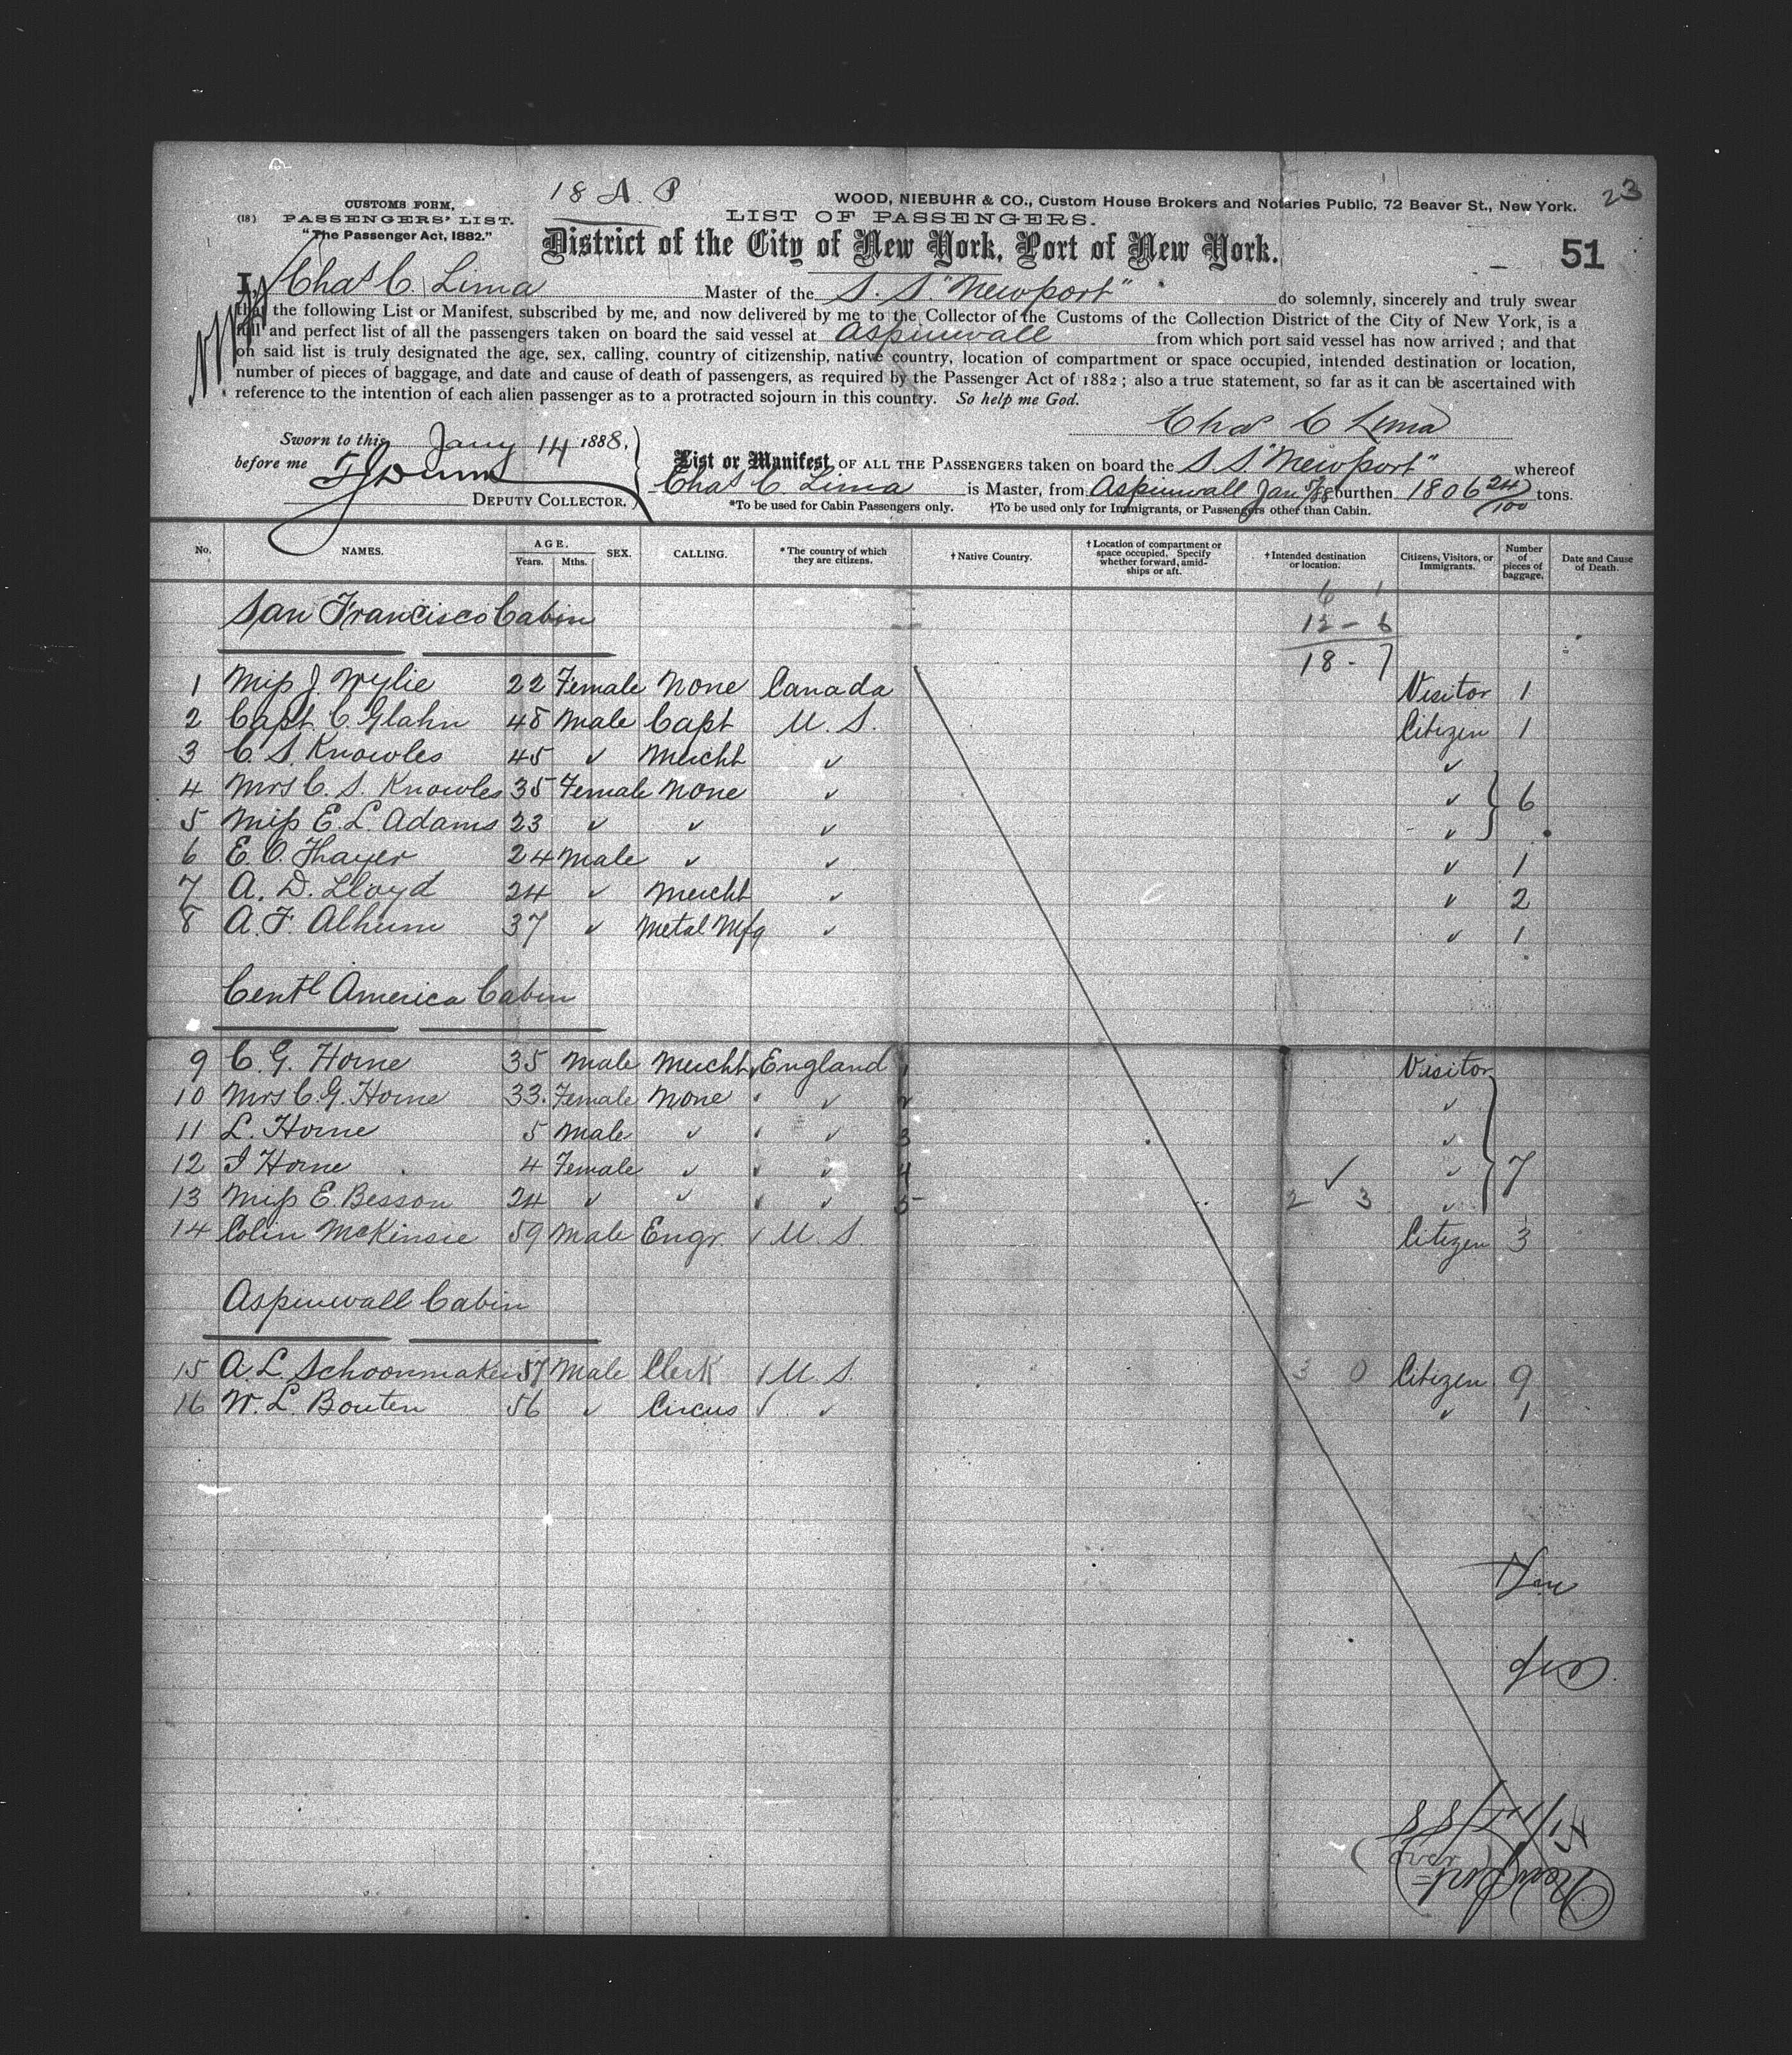 18 A. P
23
CUSTOMS FORM,
(18) PASSENGERS' LIST.
"The Passenger Act, 1882."
WOOD, NIEBUHR & CO., Custom House Brokers and Notaries Public, 72 Beaver St., New York.
LIST OF PASSENGERS.
District of the City of New York, Port of New York.
51
I, Chas C. Lima Master of the S. S. "Newport" do solemnly, sincerely and truly swear
that the following List or Manifest, subscribed by me, and now delivered by me to the Collector of the Customs of the Collection District of the City of New York, is a
full and perfect list of all the passengers taken on board the said vessel at Aspinwall from which port said vessel has now arrived ; and that
on said list is truly designated the age, sex, calling, country of citizenship, native country, location of compartment or space occupied, intended destination or location,
number of pieces of baggage, and date and cause of death of passengers, as required by the Passenger Act of 1882 ; also a true statement, so far as it can be ascertained with
reference to the intention of each alien passenger as to a protracted sojourn in this country. So help me God.
Chas C Lima
Sworn to this Jany 14 1888,
before me
DEPUTY COLLECTOR.
List or Manifest OF ALL THE PASSENGERS taken on board the S S "Newport" whereof
Chas C Lima is Master, from Aspinwall Jan 5/88 burthen 1806 24/100 tons.
*To be used for Cabin Passengers only. †To be used only for Immigrants, or Passengers other than Cabin.
No. NAMES. AGE. Years. Mths. SEX. CALLING. *The country of which they are citizens. †Native Country. †Location of compartment or space occupied. Specify whether forward, amidships or aft. †Intended destination or location. Citizens, Visitors, or Immigrants. Number of pieces of baggage. Date and Cause of Death.
6 1
San Francisco Cabin 12 - 6
18 - 7
1 Miss J Wylie 22 Female None Canada Visitor 1
2 Capt. C. Glahn 48 Male Capt U. S. Citizen 1
3 C. S. Knowles 45 ✓ Mercht ✓ ✓
4 Mrs C. S. Knowles 35 Female None ✓ ✓ 6
5 Miss E. L. Adams 23 ✓ ✓ ✓ ✓
6 E. O. Thayer 24 Male ✓ ✓ ✓ 1
7 A. D. Lloyd 24 ✓ Mercht ✓ ✓ 2
8 A. F. Alhum 37 ✓ Metal Mfg ✓ ✓ 1
Centl America Cabin
9 C. G. Horne 35 Male Mercht England 1 Visitor
10 Mrs C. G. Horne 33 Female None ✓ 2 ✓
11 L. Horne 5 Male ✓ ✓ 3 ✓
12 I Horne 4 Female ✓ ✓ 4 ✓ ✓ 7
13 Miss E Besson 24 ✓ ✓ ✓ 5 2 3 ✓
14 Colin McKinsie 59 Male Engr. U. S. Citizen 3
Aspinwall Cabin
15 A. L. Schoonmaker 57 Male Clerk U. S. 3 0 Citizen 9
16 W. L. Bouten 56 ✓ Circus ✓ ✓ 1
S S
(over)
Newport